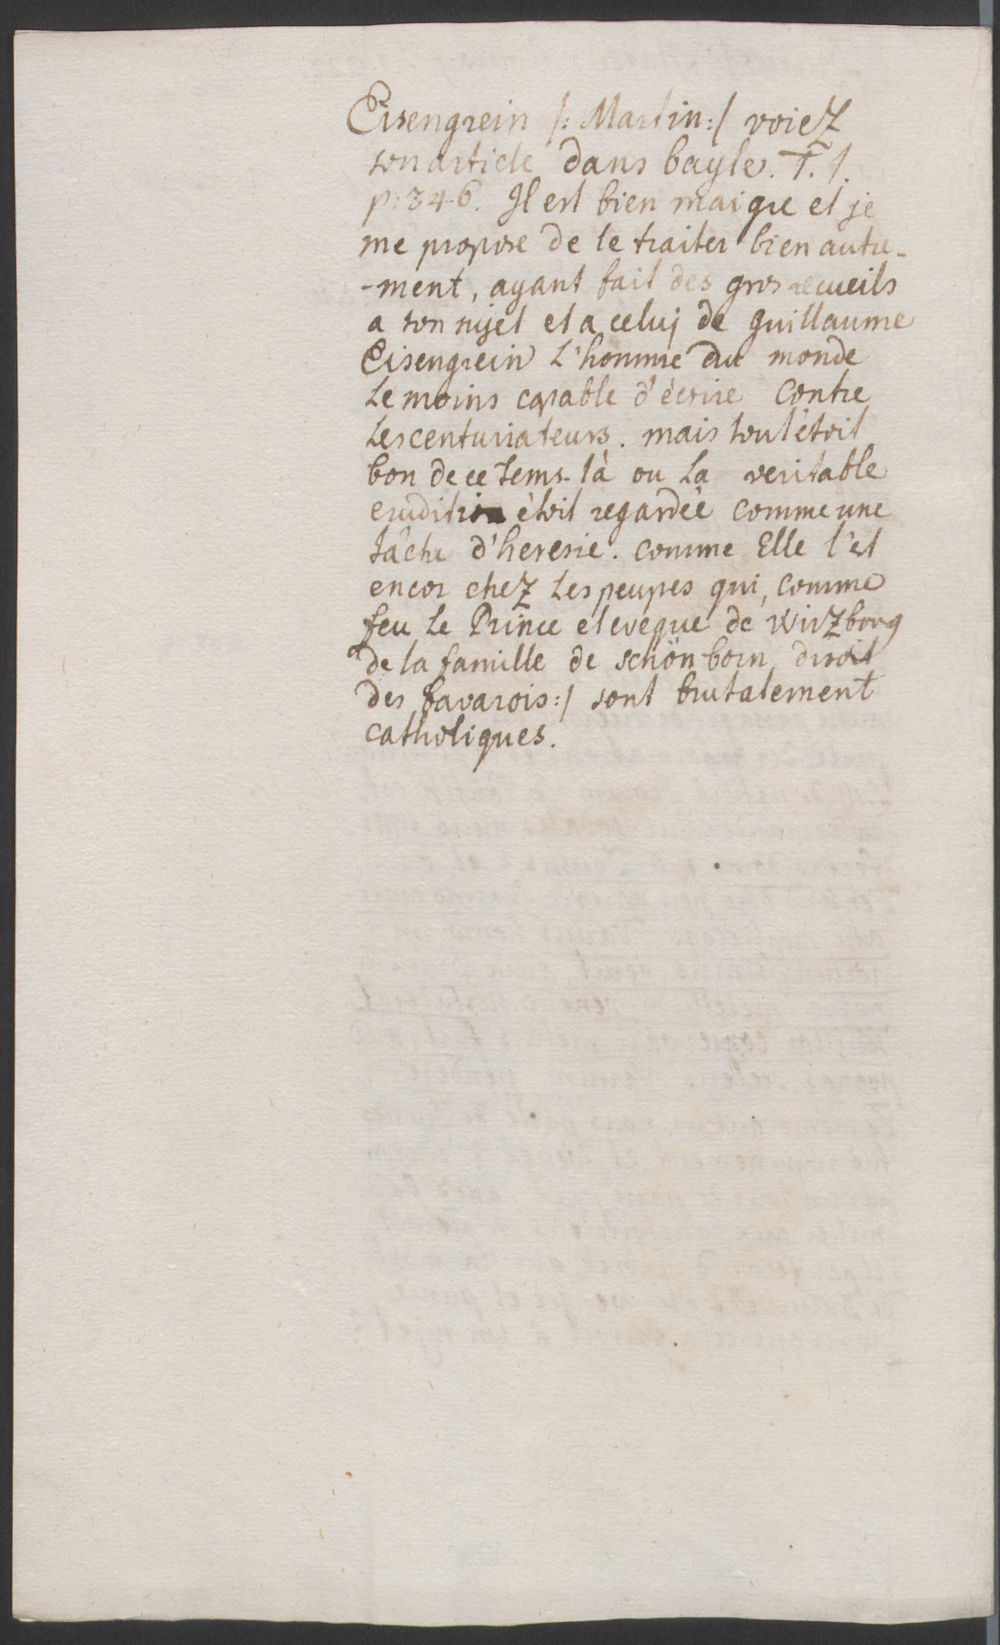 Eisengrein /: Martin :/ voieZ
son article dans bayle. T. 1.
p: 346. Il est bien maigre et je
me propose de le traiter bien autre-
-ment, ayant fait des gros recueils
a son sujet et a celuj de guillaume
Eisengrein L'homme du monde
Le moins capable d'écrire contre
Les centuriateurs. mais tout étoit
bon de ce tems-là ou La veritable
erudition étoit regardée comme une
tâche d'heresie. comme Elle l'est
encor cheZ Les peupes qui, comme
feu Le Prince et eveque de WirZbourg
de la famille de schönborn, disoit
des bavarois :/ sont brutalement
catholiques.